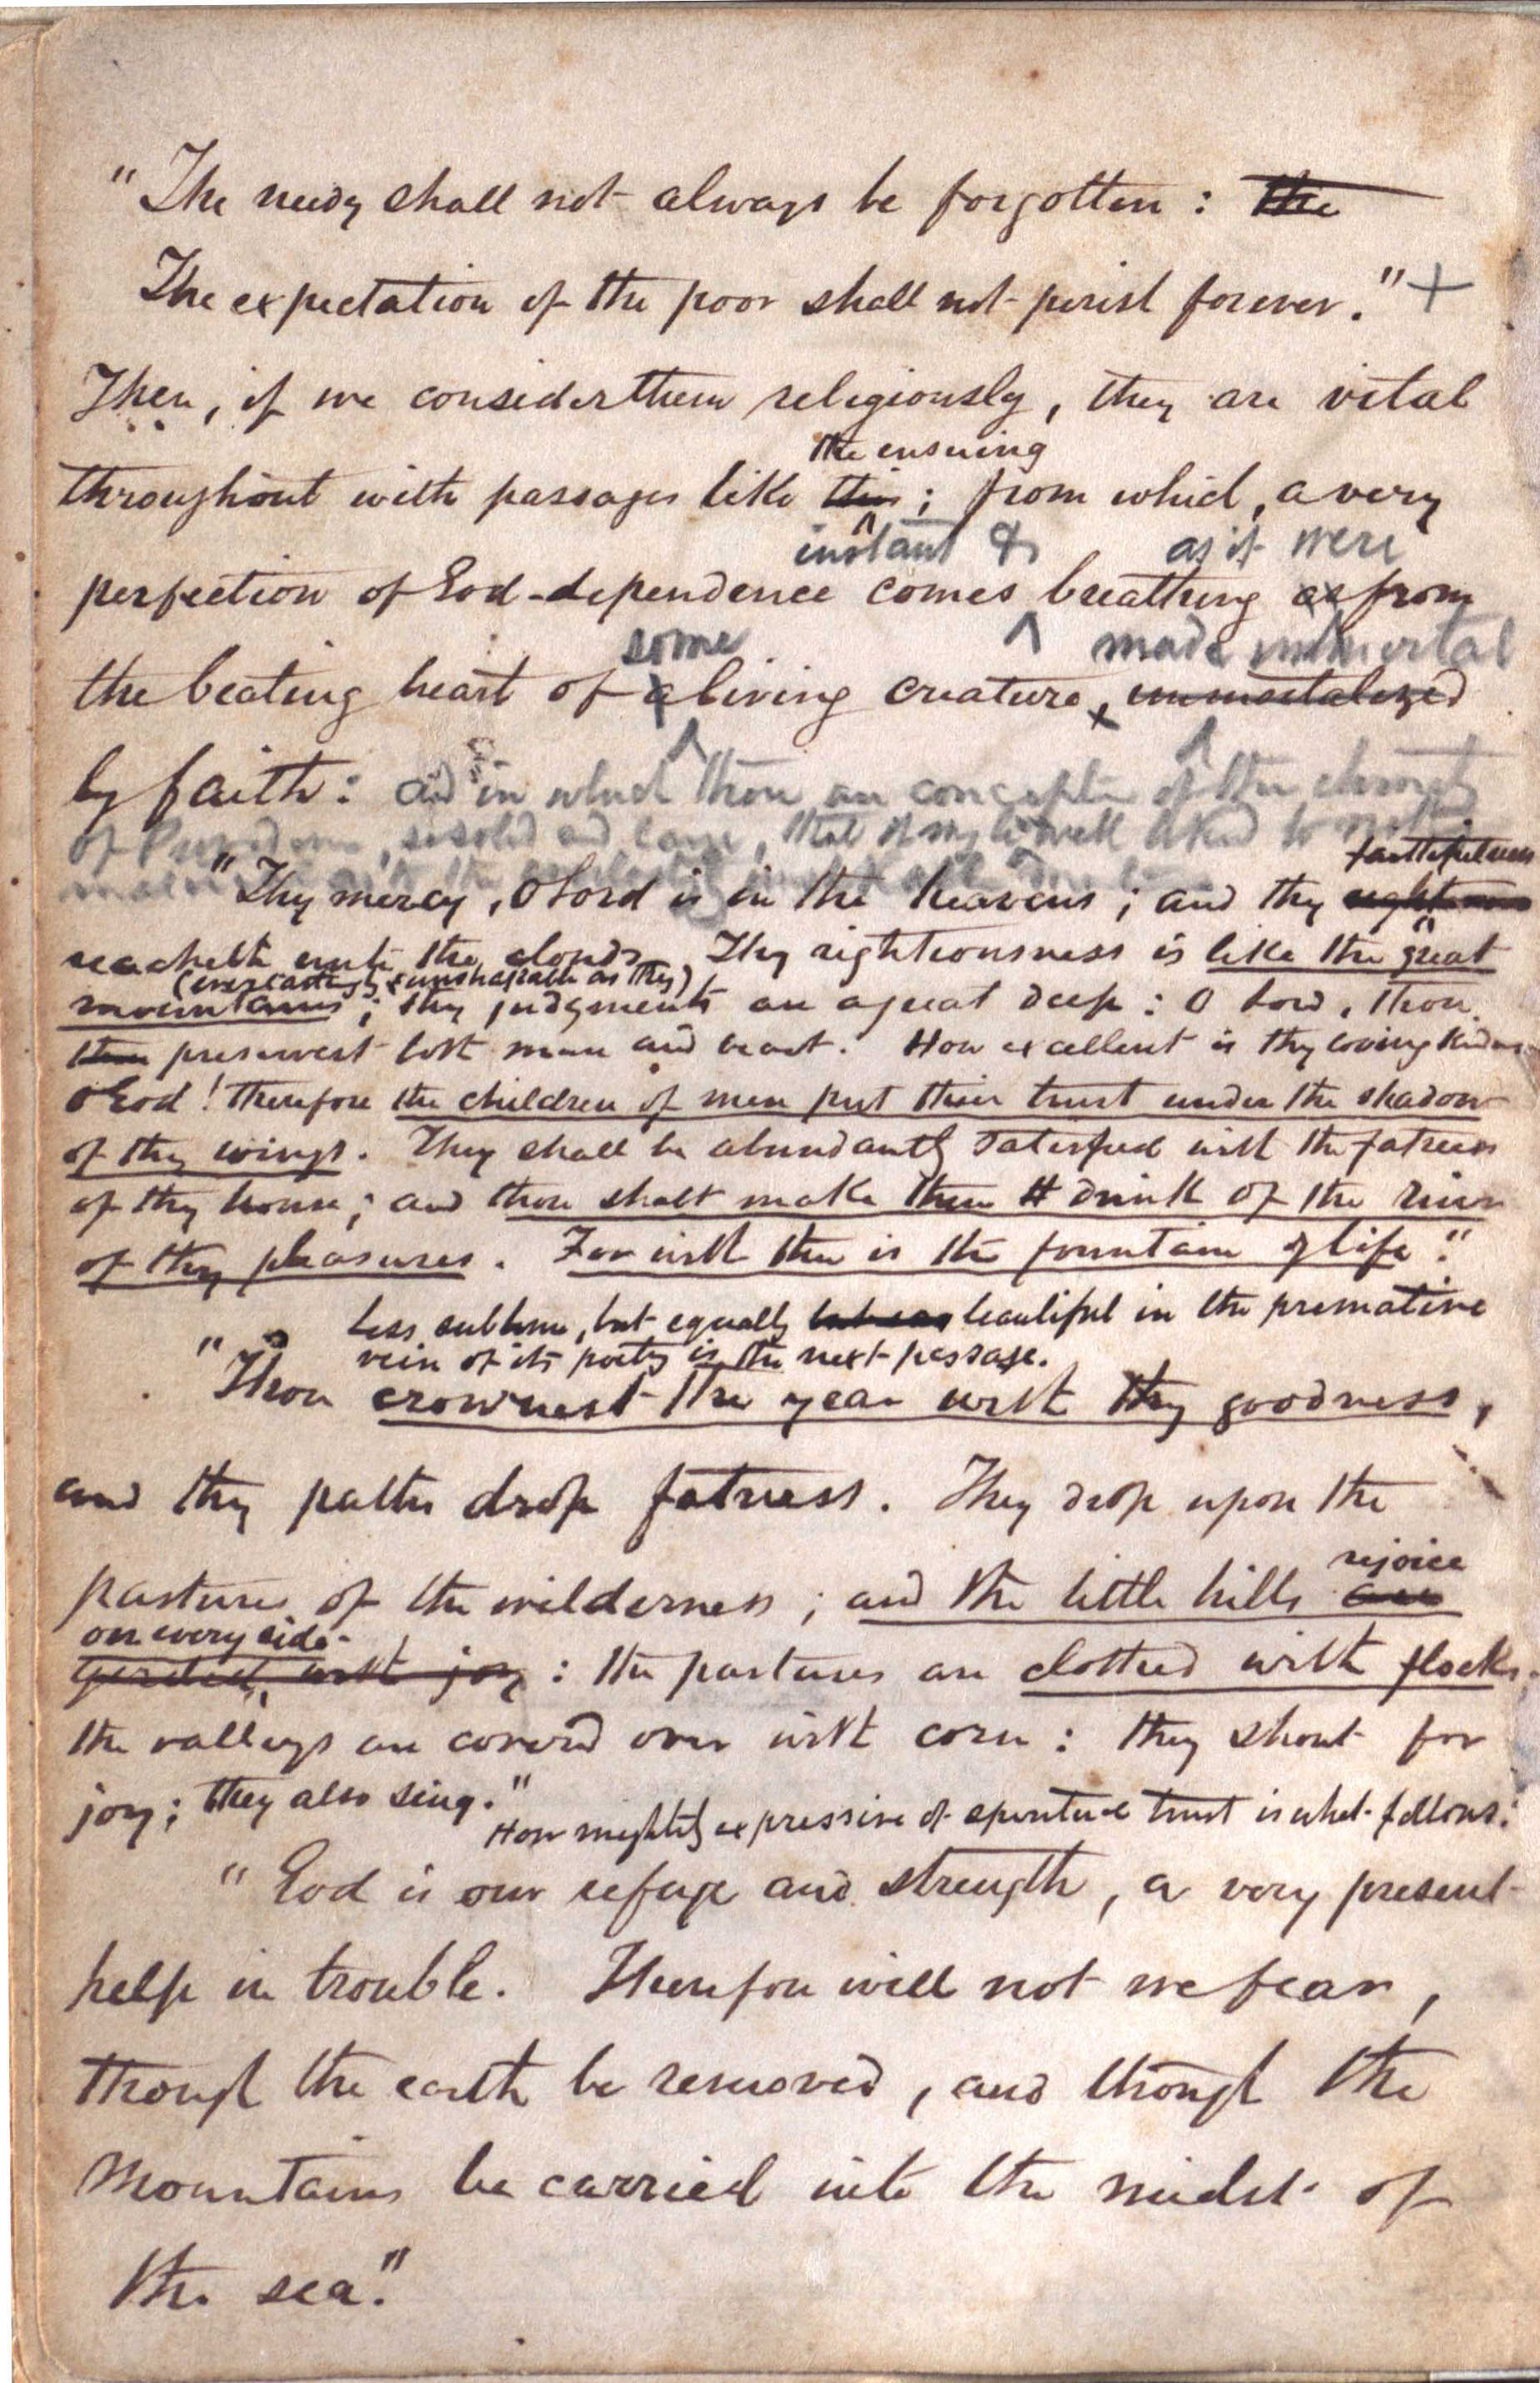 "The needy shall not always be forgotten: the
The expectation of the poor shall not perish forever." +
Then, if we consider them religiously, they are vital
the ensuing
throughout with passages like this; from which, a very
instant & as it were
perfection of God-dependence comes breathing as from
some made immortal
the beating heart of a living creature, immortalized
by faith: and in which there are conceptions of the eternity
of, so solid and, that it might well
faithfulness
"Thy mercy, O Lord is in the heavens; and thy righteousness
reacheth unto the clouds. Thy righteousness is like the great
(everlasting & unshakeable as they)
mountains; thy judgments are a great deep: O Lord, thou
thou preservest both man and beast. How excellent is thy loving kindness
O God! therefore the children of men put their trust under the shadow
of thy wings. They shall be abundantly satisfied with the fatness
of thy house; and thou shalt make them drink of the river
of thy pleasures. For with thee is the fountain of life."
Less sublime, but equally beautiful in the premative
vein of its poetry is the next passage.
"Thou crownest the year with thy goodness,
and thy paths drop fatness. They drop upon the
rejoice
pastures of the wilderness; and the little hills are
on every side
girded, with joy: the pastures are clothed with flocks.
the valleys are covered over with corn: they shout for
joy; they also sing."
How mightily expressive of spiritual trust is what follows:
"God is our refuge and strength, a very present
help in trouble. Therefore will not we fear,
though the earth be removed, and though the
mountains be carried into the midst of
the sea."